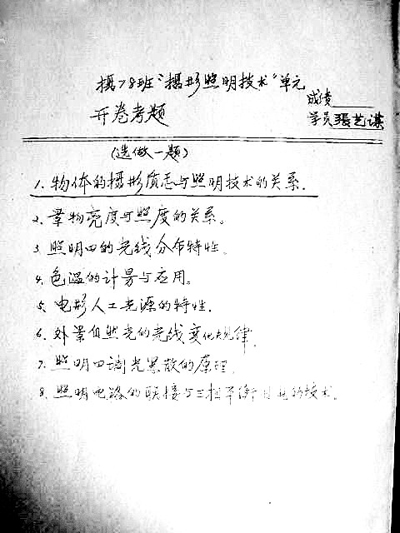 摄78班“摄影照明技术”单元
成绩
开卷考题
学员 张艺谋
(选做一题)
1. 物体的摄影质志与照明技术的关系.
2. 景物亮度与照度的关系。
3. 照明四的光线分布特性.
4. 色温的计算与应用。
5. 电影人工光源的特性.
6. 外景自然光的光线变化规律.
7. 照明四调光器散的原理.
8. 照明电路的联接与三相平衡 的技术.